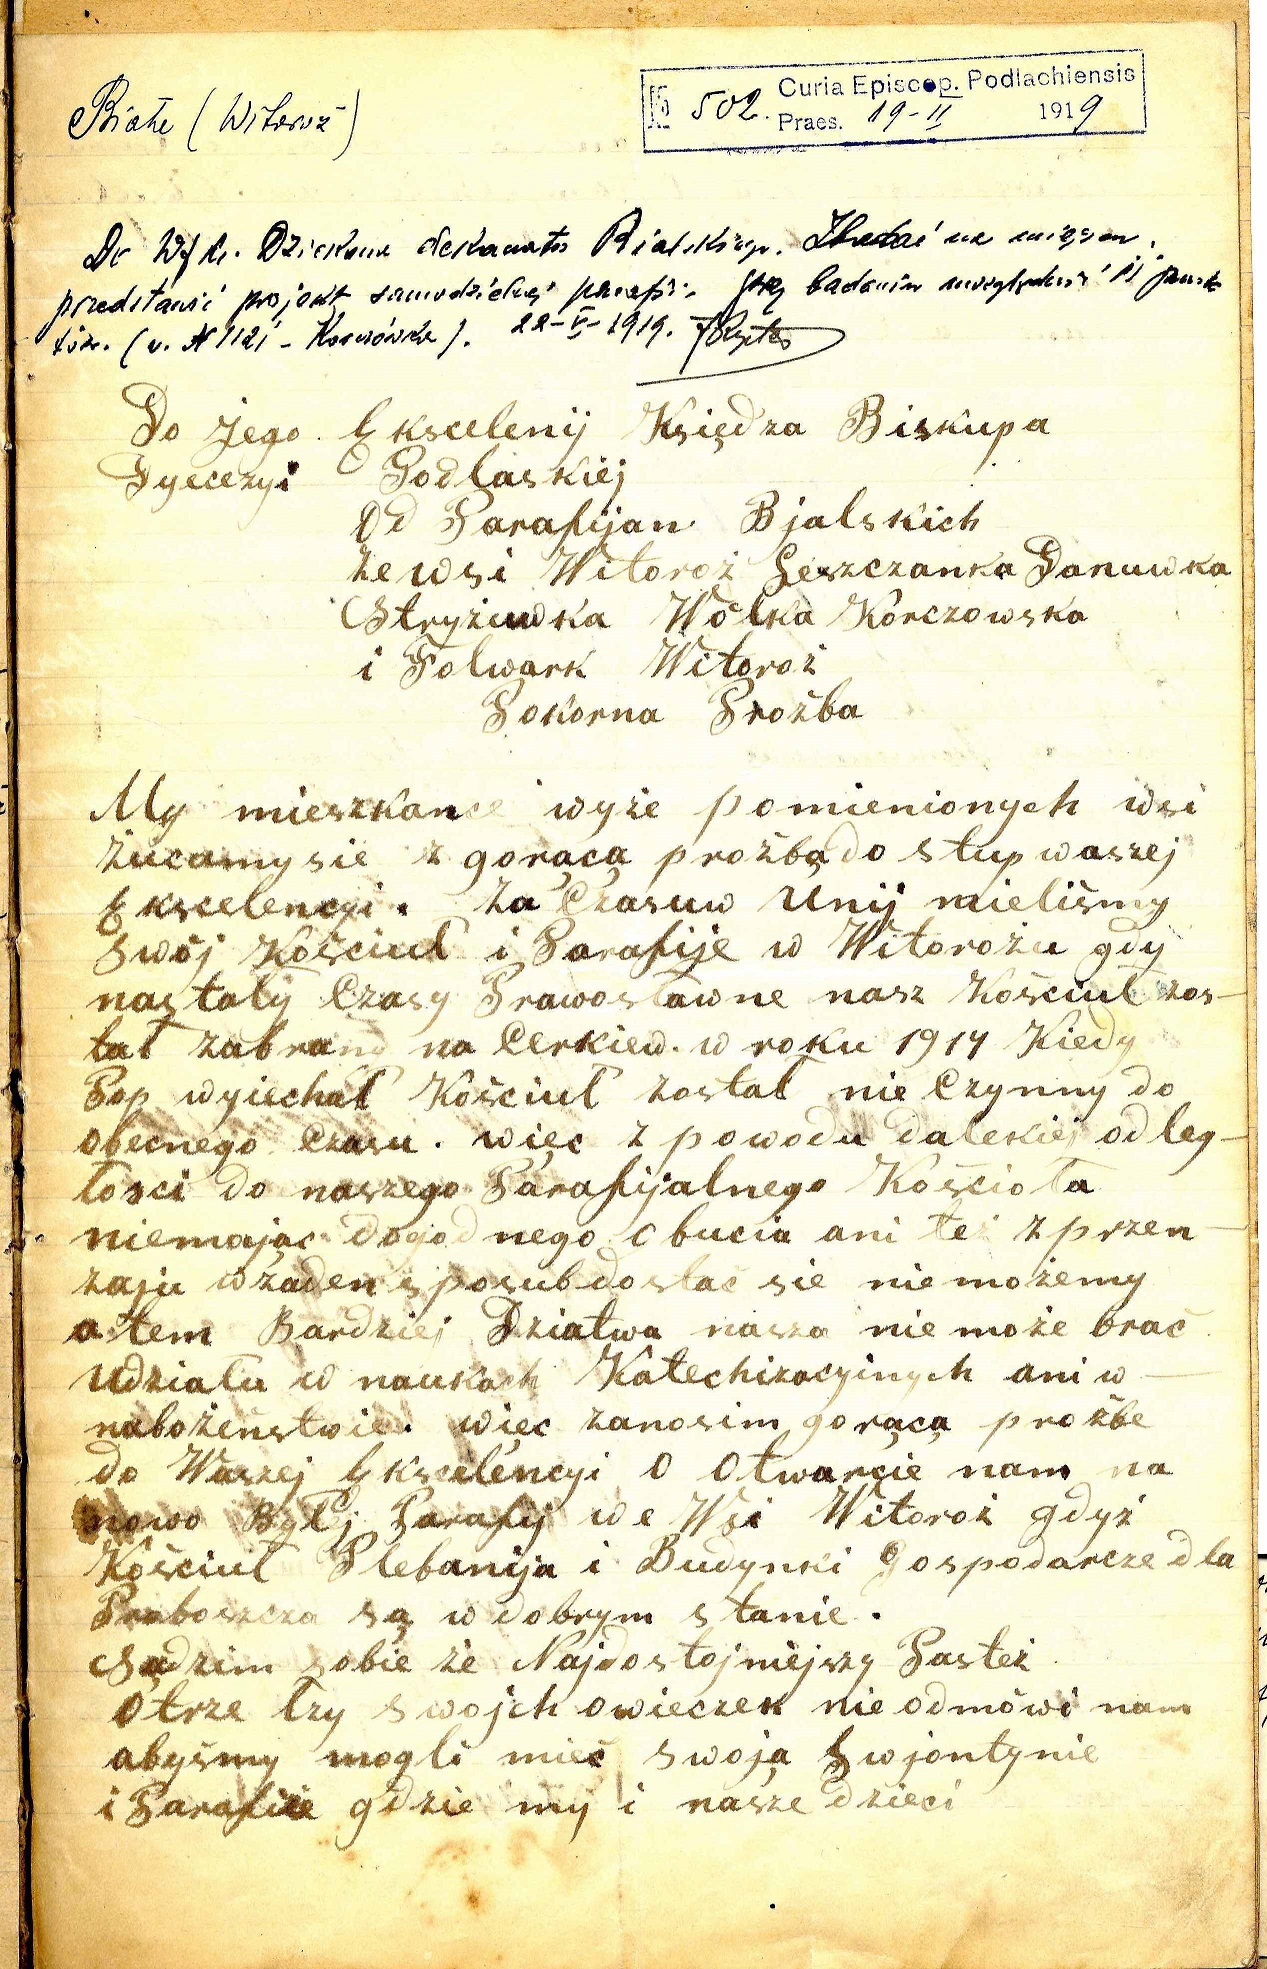 Curia Episcop. Podlachiensis
№ 502. Praes. 19-II 1919
Biała (Witoroż)
Do WJks. Dziekana dekanatu Bialskiego. Zbadać na miejscu,
przedstawić projekt samodzielnej parafii. Przy badaniu uwzględnić 11 punk
tów. (v. N 1121 - Kossówka). 22-V-1919.
Do Jego Ekscelenij Księdza Biskupa
Dyecezyi Podlaskiej
Od Parafijan Bjalskich
że wsi Witoroż Leszczanka Danuwka
Stryżuwka Wólka Korczowska
i Folwark Witoroż
Pokorna Prożba
My mieszkance wyże pomienionych wsi
żucamy sie z gorącą prożbą do stup waszej
Ekscelencyi. Za Czasuw Unij mieliśmy
swój Kościuł i Parafije w Witorożu gdy
nastały Czasy Prawosławne nasz Kościuł zos-
tał zabrany na Cerkiew. w roku 1914 Kiedy
Pop wyiechał Kościuł został nie Czynny do
obecnego Czasu. więc z powodu dalekiej odleg-
łosci do naszego Parafijalnego Kościoła
niemając dogodnego obucia ani też z przen-
zaju w żaden sposub dostać sie nie możemy
a tem Bardziej Dziatwa nasza nie może brać
udziału w naukach Katechizacyinych ani w
nabożeństwie. więc zanosim gorącą prożbe
do Waszej Ekscelencyi o Otwarcie nam na
nowo Byłj Parafij we Wsi Witoroż gdyż
Kościuł Plebanija i Budynki Gospodarcze dla
Proboszcza są w dobrym stanie.
Sądzim sobie że Najdostojniejszy Pasteż
Otrze łzy swojch owieczek nie odmówi nam
abyśmy mogli mieć swoją Swjontynie
i Parafiie gdzie my i nasze dzieci